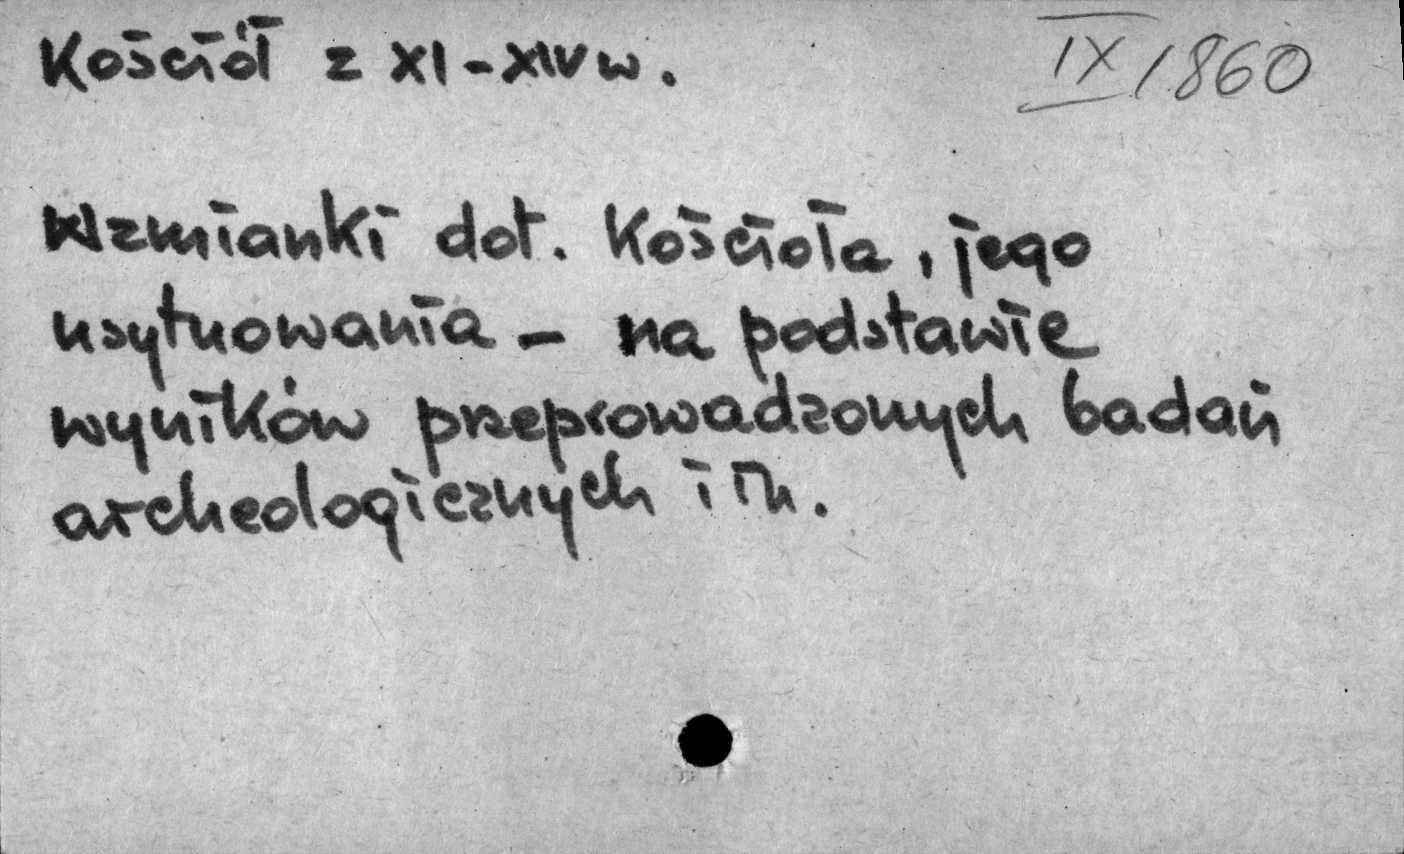 Kościół z XI-XIV w. IX/860
Wzmianki dot. Kościoła, jego
usytuowania - na podstawie
wyników przeprowadzonych badań
archeologicznych i in.